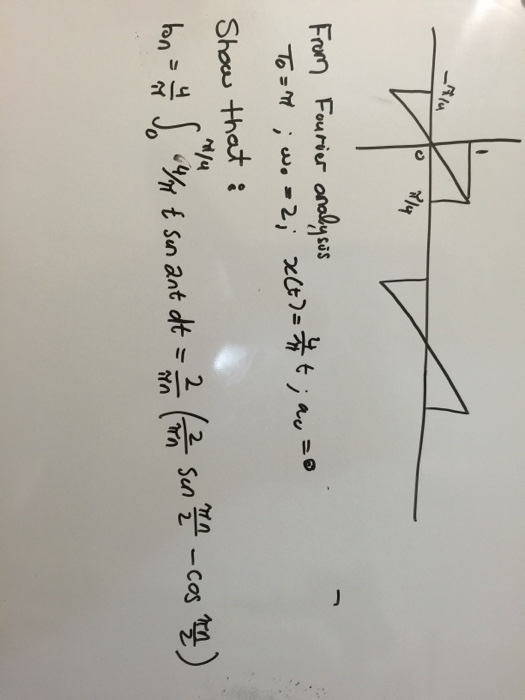 -π/4 0 π/4
1
From Fourier analysis
T₀ = π ; ω₀ = 2 ; x(t) = 4/π t ; a₀ = 0
Show that :
bn = 4/π ∫₀^π/4 4/π t sin 2nt dt = 2/πn (2/πn sin πn/2 - cos πn/2)